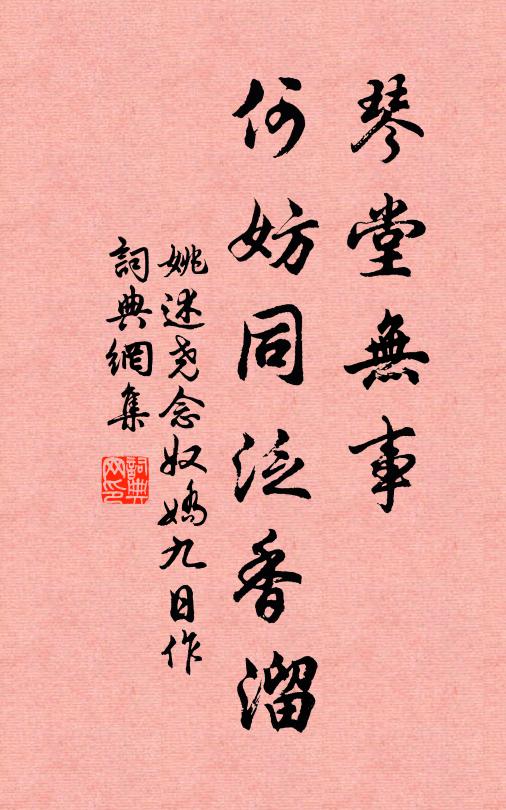 琴堂無事
何妨同泛香溜
姚述尧念奴嬌九日作
詞典網集
詞典網印